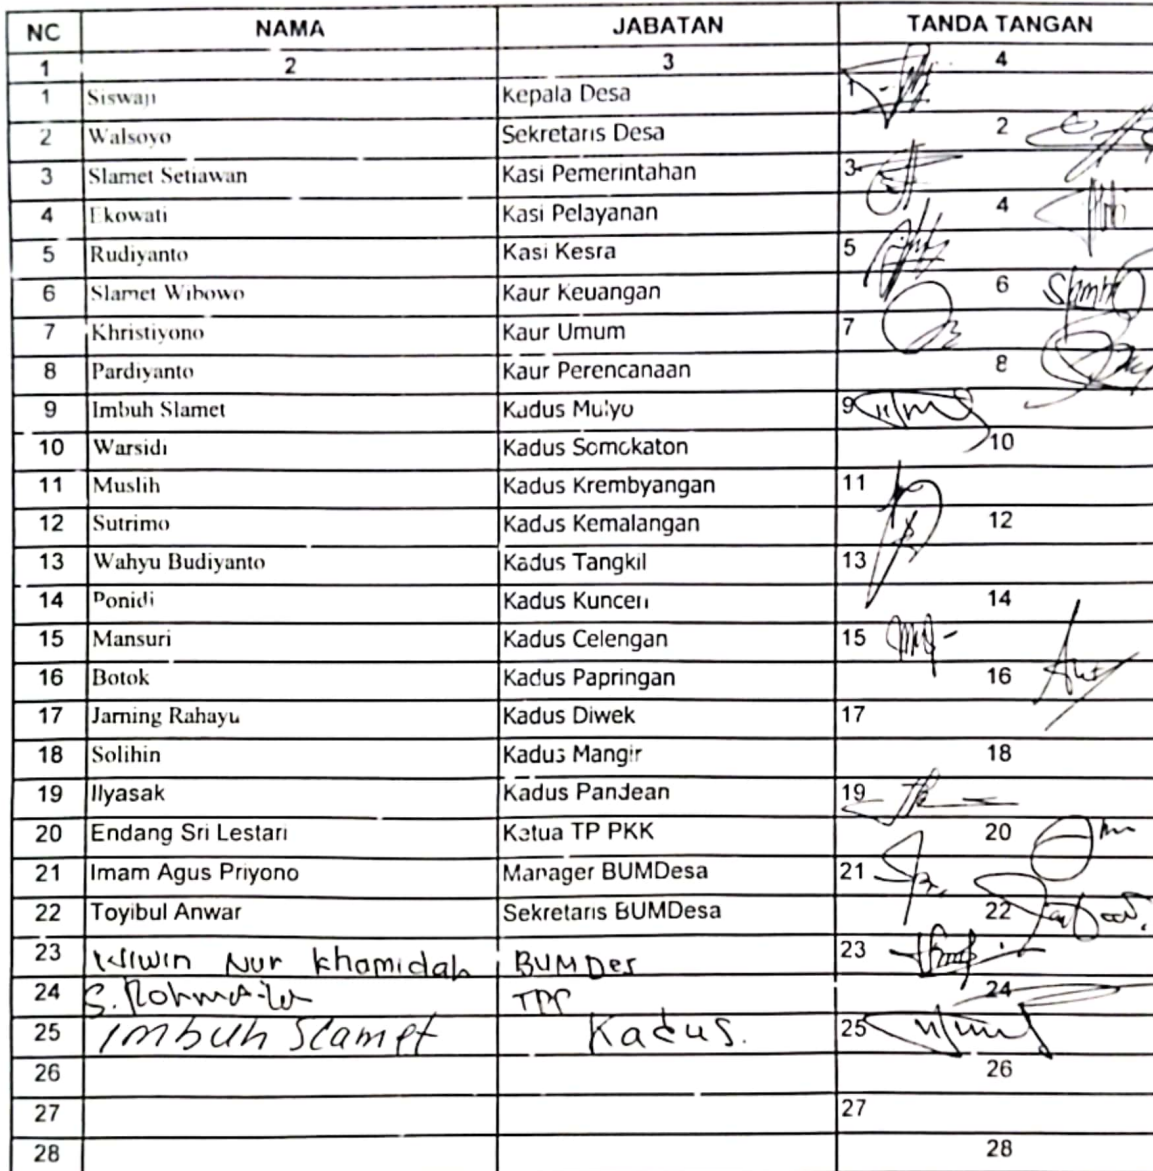 NC NAMA JABATAN TANDA TANGAN
1 2 3 4
1 Siswaji Kepala Desa 1
2 Walsoyo Sekretaris Desa 2
3 Slamet Setiawan Kasi Pemerintahan 3
4 Ekowati Kasi Pelayanan 4
5 Rudiyanto Kasi Kesra 5
6 Slamet Wibowo Kaur Keuangan 6
7 Khristiyono Kaur Umum 7
8 Pardiyanto Kaur Perencanaan 8
9 Imbuh Slamet Kadus Mulyo 9
10 Warsidi Kadus Somokaton 10
11 Muslih Kadus Krembyangan 11
12 Sutrimo Kadus Kemalangan 12
13 Wahyu Budiyanto Kadus Tangkil 13
14 Ponidi Kadus Kunceri 14
15 Mansuri Kadus Celengan 15
16 Botok Kadus Papringan 16
17 Jarning Rahayu Kadus Diwek 17
18 Solihin Kadus Mangir 18
19 Ilyasak Kadus Pandean 19
20 Endang Sri Lestari Ketua TP PKK 20
21 Imam Agus Priyono Manager BUMDesa 21
22 Toyibul Anwar Sekretaris BUMDesa 22
23 Wiwin Nur Khamidah BUMDes 23
24 S. 24
25 Imbuh Slamet Kadus. 25
26 26
27 27
28 28